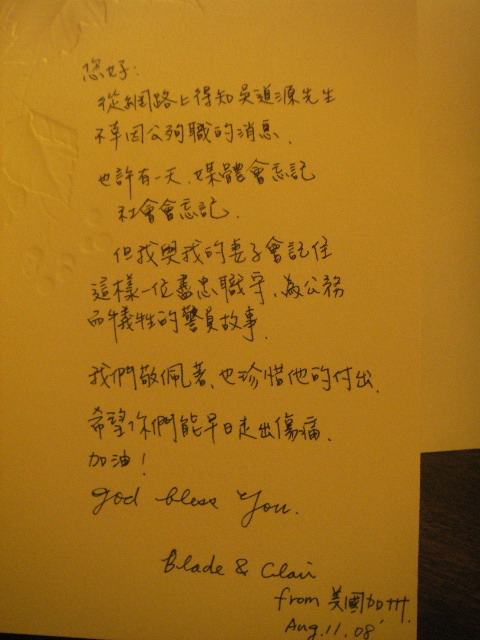 您好:
從網路上得知吳道源先生
不幸因公殉職的消息.
也許有一天,媒體會忘記
社會會忘記.
但我與我的妻子會記住
這樣一位盡忠職守,為公務
而犧牲的警員故事.
我們敬佩著,也珍惜他的付出.
希望你們能早日走出傷痛.
加油!
God bless You.
Blade & Clair
from 美國加州.
Aug.11.08'